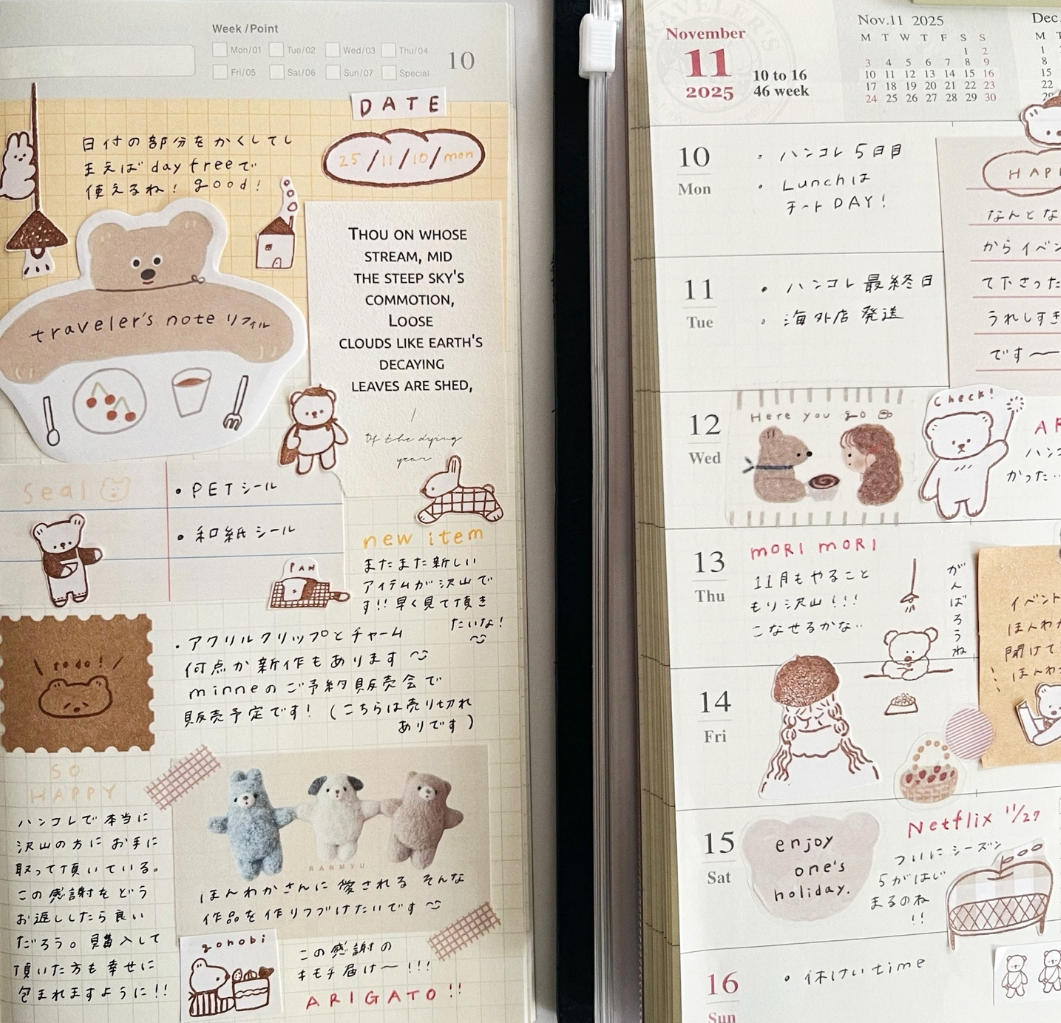 Week / Point
Mon/01 Tue/02 Wed/03 Thu/04
Fri/05 Sat/06 Sun/07 Special
10
DATE
25/11/10/mon
日付の部分をかくしてし
まえば day freeで
使えるね！good！
traveler's note リフィル
THOU ON WHOSE
STREAM, MID
THE STEEP SKY'S
COMMOTION,
LOOSE
CLOUDS LIKE EARTH'S
DECAYING
LEAVES ARE SHED,
/
Of the dying
year
Seal
・PETシール
・和紙シール
PAN
new item
またまた新しい
アイテムが沢山で
す!!早く見て頂き
たいな！
to do!
・アクリルクリップとチャーム
何点か新作もあります
minneのご予約販売会で
販売予定です！（こちらは売り切れ
ありです）
SO
HAPPY
ハンコレで本当に
沢山の方にお手に
取って頂いている。
この感謝をどう
お返ししたら良い
だろう。購入して
頂いた方も幸せに
包まれますように!!
RANMYU
ほんわかさんに愛される そんな
作品を作りつづけたいです
gohobi
この感謝の
キモチ届け〜!!!
ARIGATO!!
November
11
2025
10 to 16
46 week
Nov.11 2025
M T W T F S S
1 2
3 4 5 6 7 8 9
10 11 12 13 14 15 16
17 18 19 20 21 22 23
24 25 26 27 28 29 30
Dec.
M
1
8
15
22
29
10
Mon
・ハンコレ5日目
・Lunchは
チートDAY！
HAP
なんとな
からイベン
て下さった
うれしすぎ
です〜
11
Tue
・ハンコレ最終日
・海外店発送
12
Wed
Here you go
Check!
AR
ハンコ
かった‥
13
Thu
MORI MORI
11月もやること
もり沢山!!!
こなせるかな‥
がんばろうね
イベント
ほんわか
開けて
ほんわ
14
Fri
15
Sat
enjoy
one's
holiday.
Netflix 11/27
ついにシーズン
5がはじ
まるのね
!!
16
Sun
・休けい time